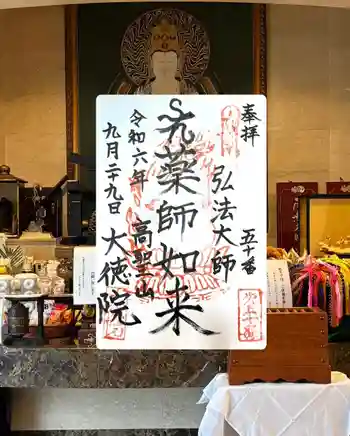 奉拝
五十番
弘法大師
薬師如来
令和六年
九月二十九日
高聖山
大徳院